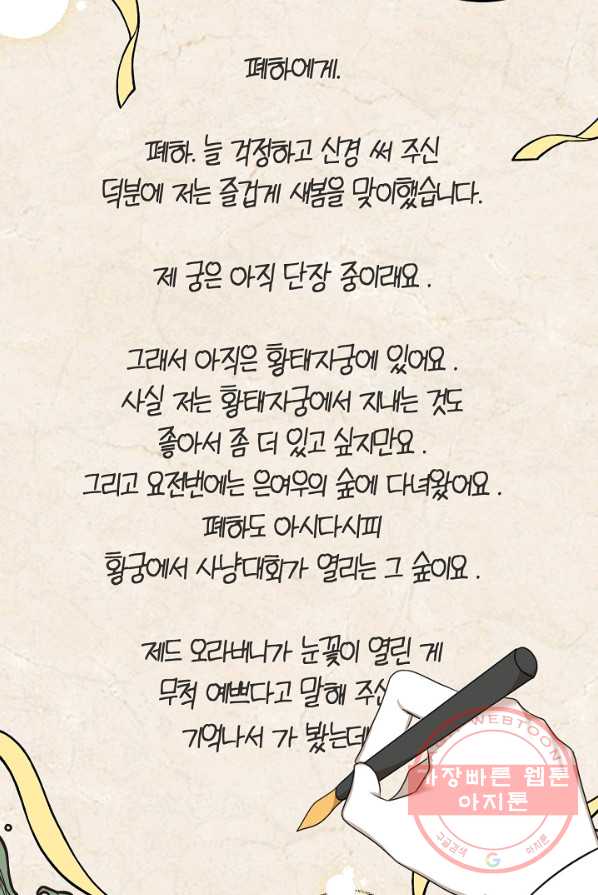 폐하에게.
폐하. 늘 걱정하고 신경 써 주신
덕분에 저는 즐겁게 새봄을 맞이했습니다.
제 궁은 아직 단장 중이래요.
그래서 아직은 황태자궁에 있어요.
사실 저는 황태자궁에서 지내는 것도
좋아서 좀 더 있고 싶지만요.
그리고 요전번에는 은여우의 숲에 다녀왔어요.
폐하도 아시다시피
황궁에서 사냥대회가 열리는 그 숲이요.
제드 오라버니가 눈꽃이 열린 게
무척 예쁘다고 말해 주신
기억나서 가 봤는데
WEBTOON
가장빠른 웹툰
아지툰
구글검색 G 아지툰